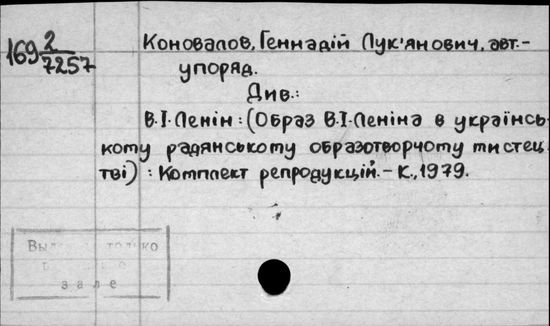 169 2/7257
Коновалов, Геннадій Лук'янович, авт.-
упоряд.
Див.:
В.І. Ленін : (Образ В.І. Леніна в українсь-
кому радянському образотворчому мистец-
тві) : Комплект репродукцій. – К., 1979.
только
зале